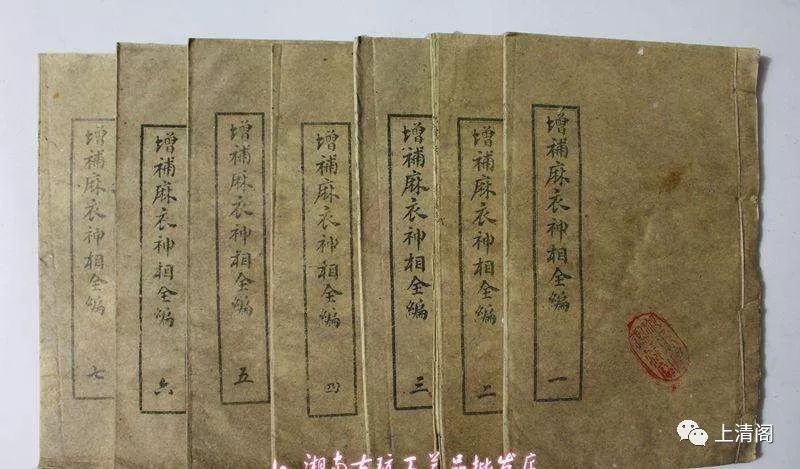 增補麻衣神相全編 一
增補麻衣神相全編 二
增補麻衣神相全編 三
增補麻衣神相全編 四
增補麻衣神相全編 五
增補麻衣神相全編 六
增補麻衣神相全編 七
上清阁
湖南古玩工艺品批发店